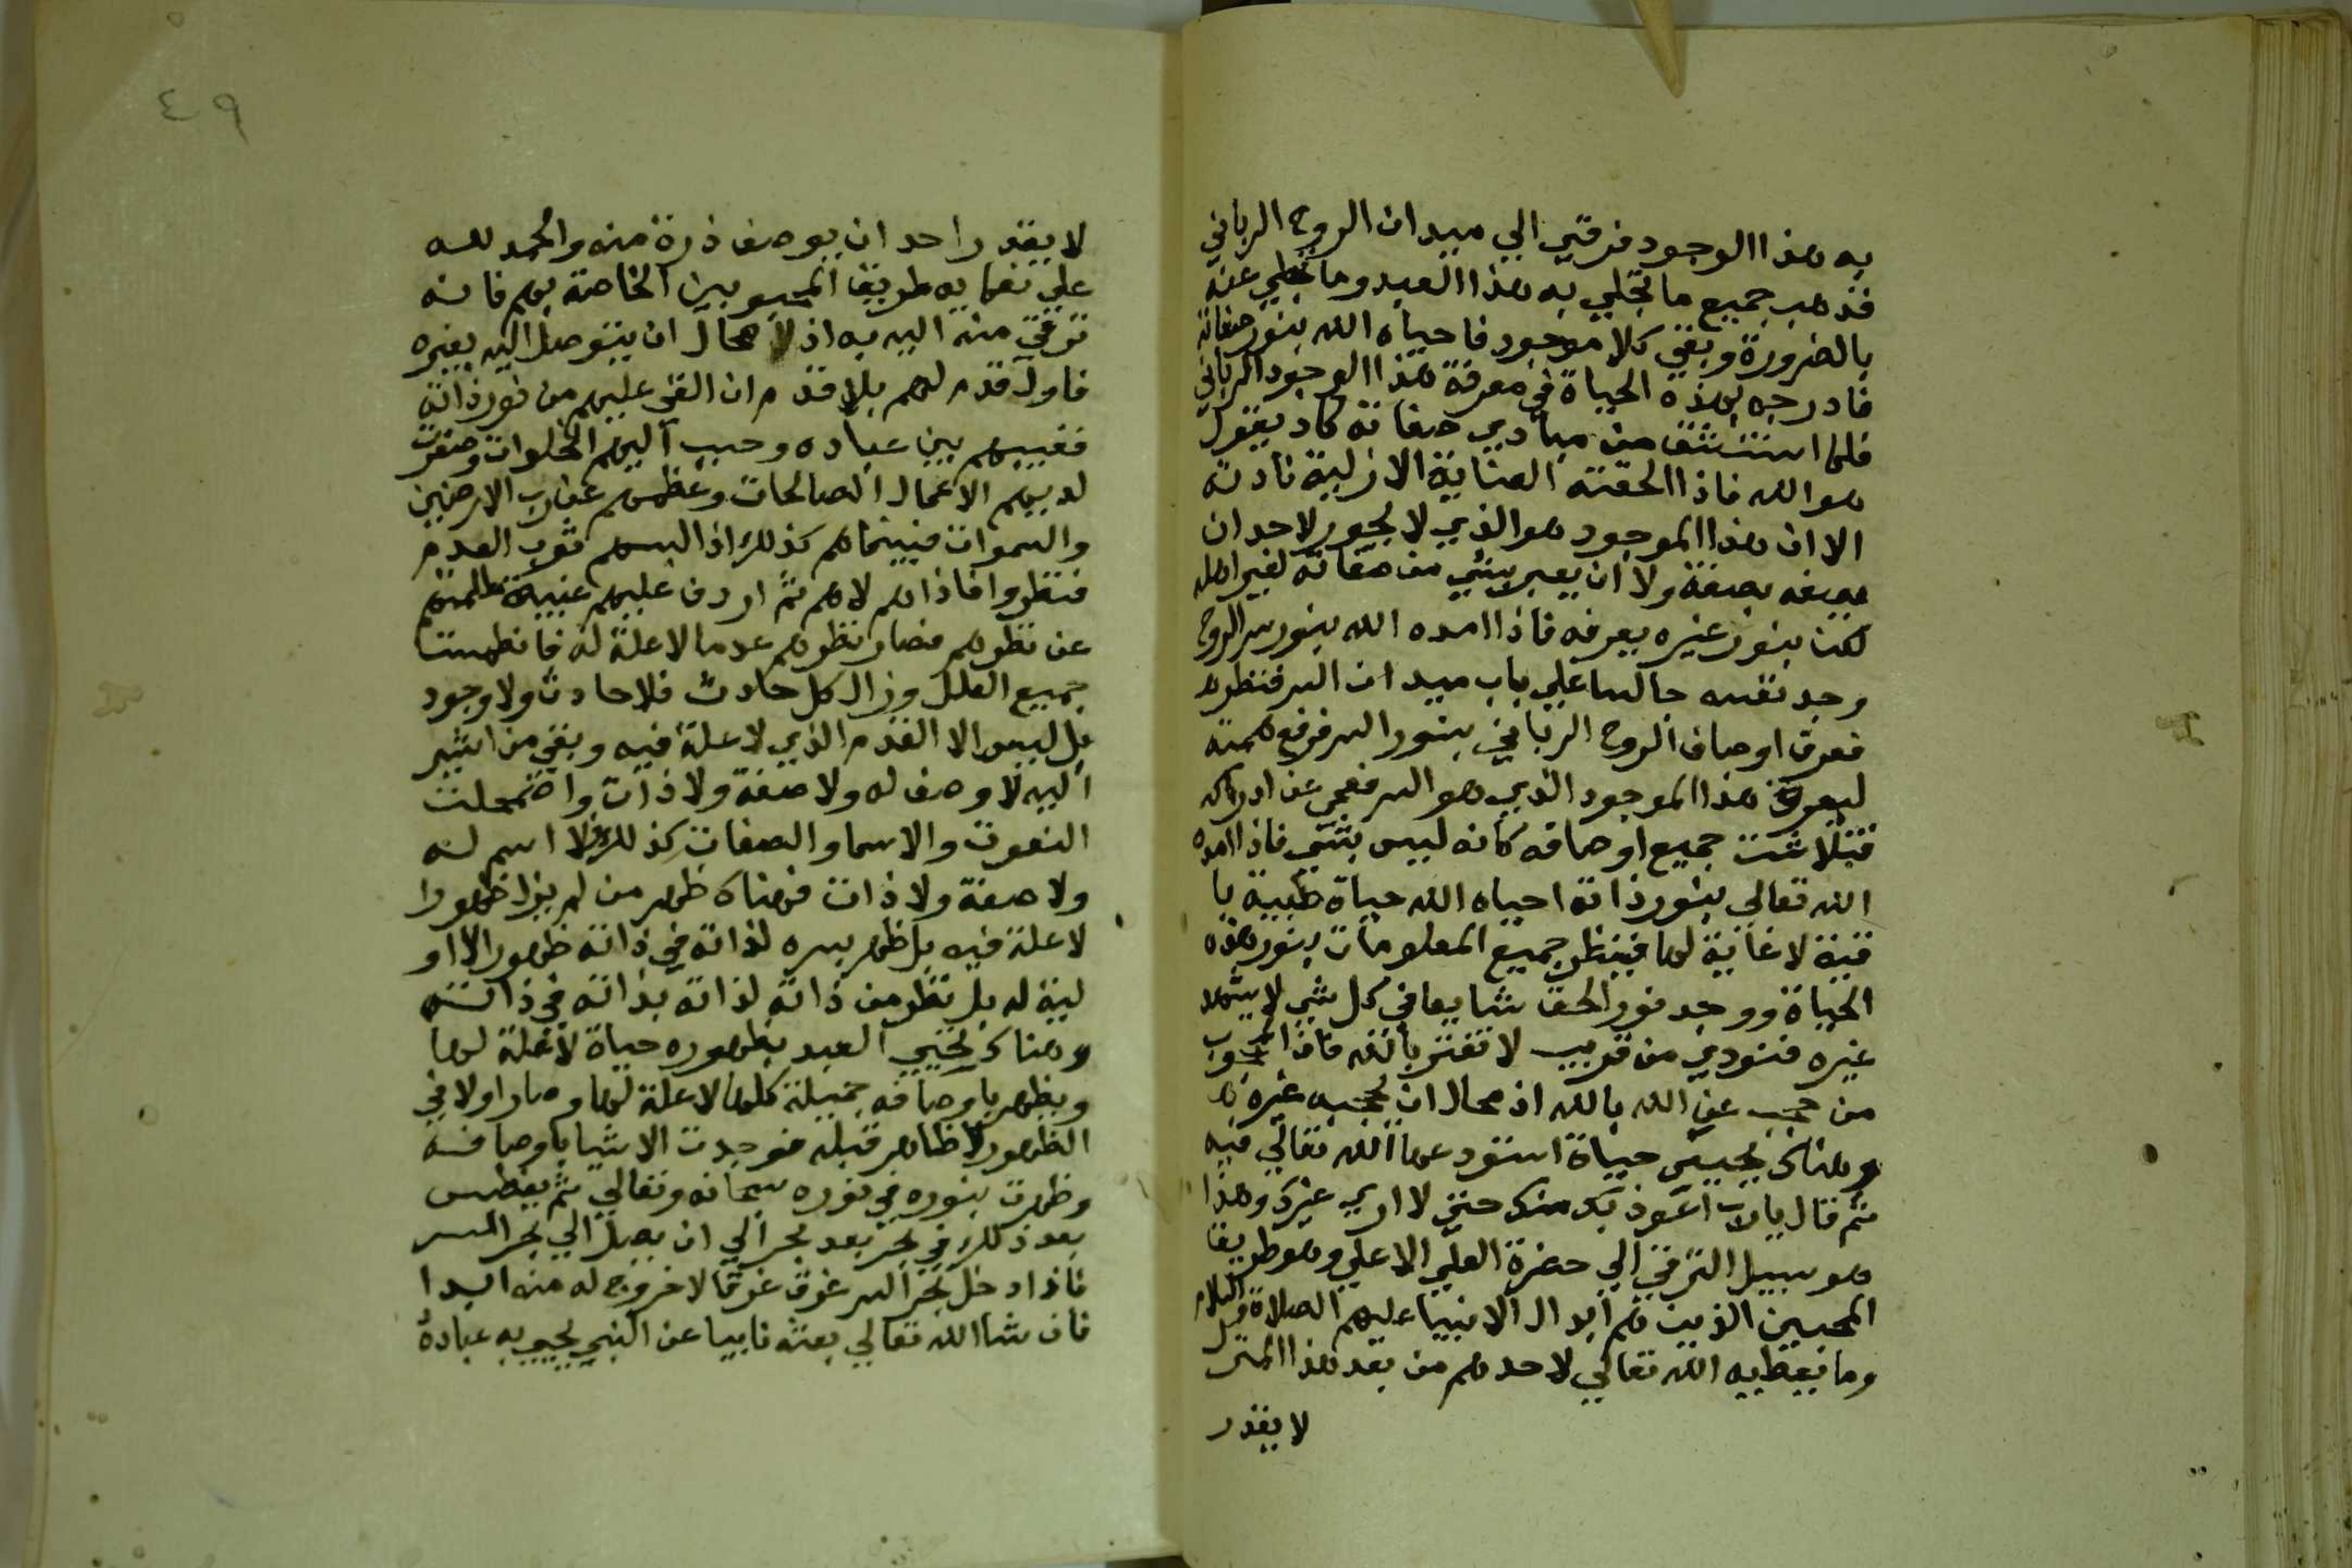 به هذا الوجود فرقي الي ميدان الروح الرباني
فذهب جميع ما تحلي به هذا العبد وما تخلي عنه
بالضرورة وبقي كلا موجود فاحياه الله بنور صفاته
فادرجه بهذه الحياة في معرفة هذا الوجود الرباني
فلما استنشق من مبادي صفاته كاد يقول
هو الله فاذا الحقته العناية الازلية نادته
الا ان هذا الموجود هو الذي لا يجوز لاحد ان
يصفه بصفة ولا ان يعبر بشي من صفاته لغير اهله
لكن بنور غيره يعرفه فاذا امده الله بنور سر الروح
وجد نفسه جالسا علي باب ميدان السر فنظر
فعرف اوصاف الروح الرباني بنور السر فرفع همته
ليعرف هذا الموجود الذي هو السر فعمي عن ادراكه
فتلاشت جميع اوصافه كانه ليس بشي فاذا امده
الله تعالي بنور ذاته احياه الله حياة طيبة با
قية لا غاية لها فينظر جميع المعلومات بنور هذه
الحياة ووجد نور الحق شايعا في كل شي لا يشهد
غيره فنودي من قريب لا تغتر بالله فان المحجوب
من حجب عن الله بالله اذ محال ان يحجبه غيره
وهناك يحيي حياة استودعها الله تعالي فيه
ثم قال يارب اعوذ بك منك حتي لا اري غيرك وهذا
هو سبيل الترقي الي حضرة العلي الاعلي وهو طريق
المحبين الذين هم ابدال الانبيا عليهم الصلاة والسلام
وما يعطيه الله تعالي لاحدهم من بعد هذا المنزل
لا يقدر
٤٩
لا يقدر احد ان يوصف ذرة منه والحمد لله
علي نعمايه طريق المحبوبين الخاصة بهم فانه
ترقي منه اليه به اذ لا محال ان يتوصل اليه بغيره
فاول قدم لهم بلا قدم ان القي عليهم من نور ذاته
فغيبهم بين عباده وحبب اليهم الخلوات وصغرت
لديهم الاعمال الصالحات وعظم عندهم رب الارضين
والسموات فبينما هم كذلك اذ البسهم ثوب العدم
فنظروا فاذا هم لا هم ثم اردف عليهم غيبة
عن نظرهم فصار نظرهم عدما لا علة له فانطمست
جميع العلل وزال كل حادث فلا حادث ولا وجود
بل ليس الا القدم الذي لا علة فيه وبقي من اشير
اليه لا وصف له ولا صفة ولا ذات واضمحلت
النعوت والاسما والصفات كذلك فلا اسم له
ولا صفة ولا ذات فهناك ظهر من لم يزل ظهورا
لا علة فيه بل ظهر بسره لذاته في ذاته ظهورا لا او
لية له بل نظر من ذاته لذاته بذاته في ذاته
وهناك يحيي العبد بظهوره حياة لا علة لها
ويظهر باوصافه جميلة كلها لا علة لها وصار اولا في
الظهور لا ظاهر قبله فوجدت الاشيا باوصافه
وظهرت بنوره في نوره سبحانه وتعالي ثم يغطس
بعد ذلك في بحر بعد بحر الي ان يصل الي بحر السر
فاذا دخل بحر السر غرق غرقا لا خروج له منه ابدا
فان شا الله تعالي بعثه نايبا عن النبي يحيي به عباده